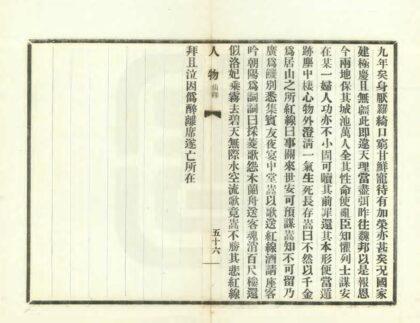 九年矣身厭羅綺口窮甘鮮寵待有加榮亦甚矣況國家
建極慶且無疆此即違天理當盡弭昨往魏邦以是報恩
今兩地保其城池萬人全其性命使亂臣知懼列士謀安
在某一婦人功亦不小固可贖其前罪還其本形便當遁
跡塵中棲心物外澄清一氣生死長存嵩曰不然以千金
爲居山之所紅線曰事關來世安可預謀嵩知不可留乃
廣爲餞別悉集賓友夜宴中堂嵩以歌送紅線酒請座客
吟朝陽爲詞詞曰採菱歌怨木蘭舟送客魂消百尺樓還
似洛妃乘霧去碧天無際水空流歌竟嵩不勝其悲紅線
人物 仙釋 五十六
拜且泣因僞醉離席遂亡所在